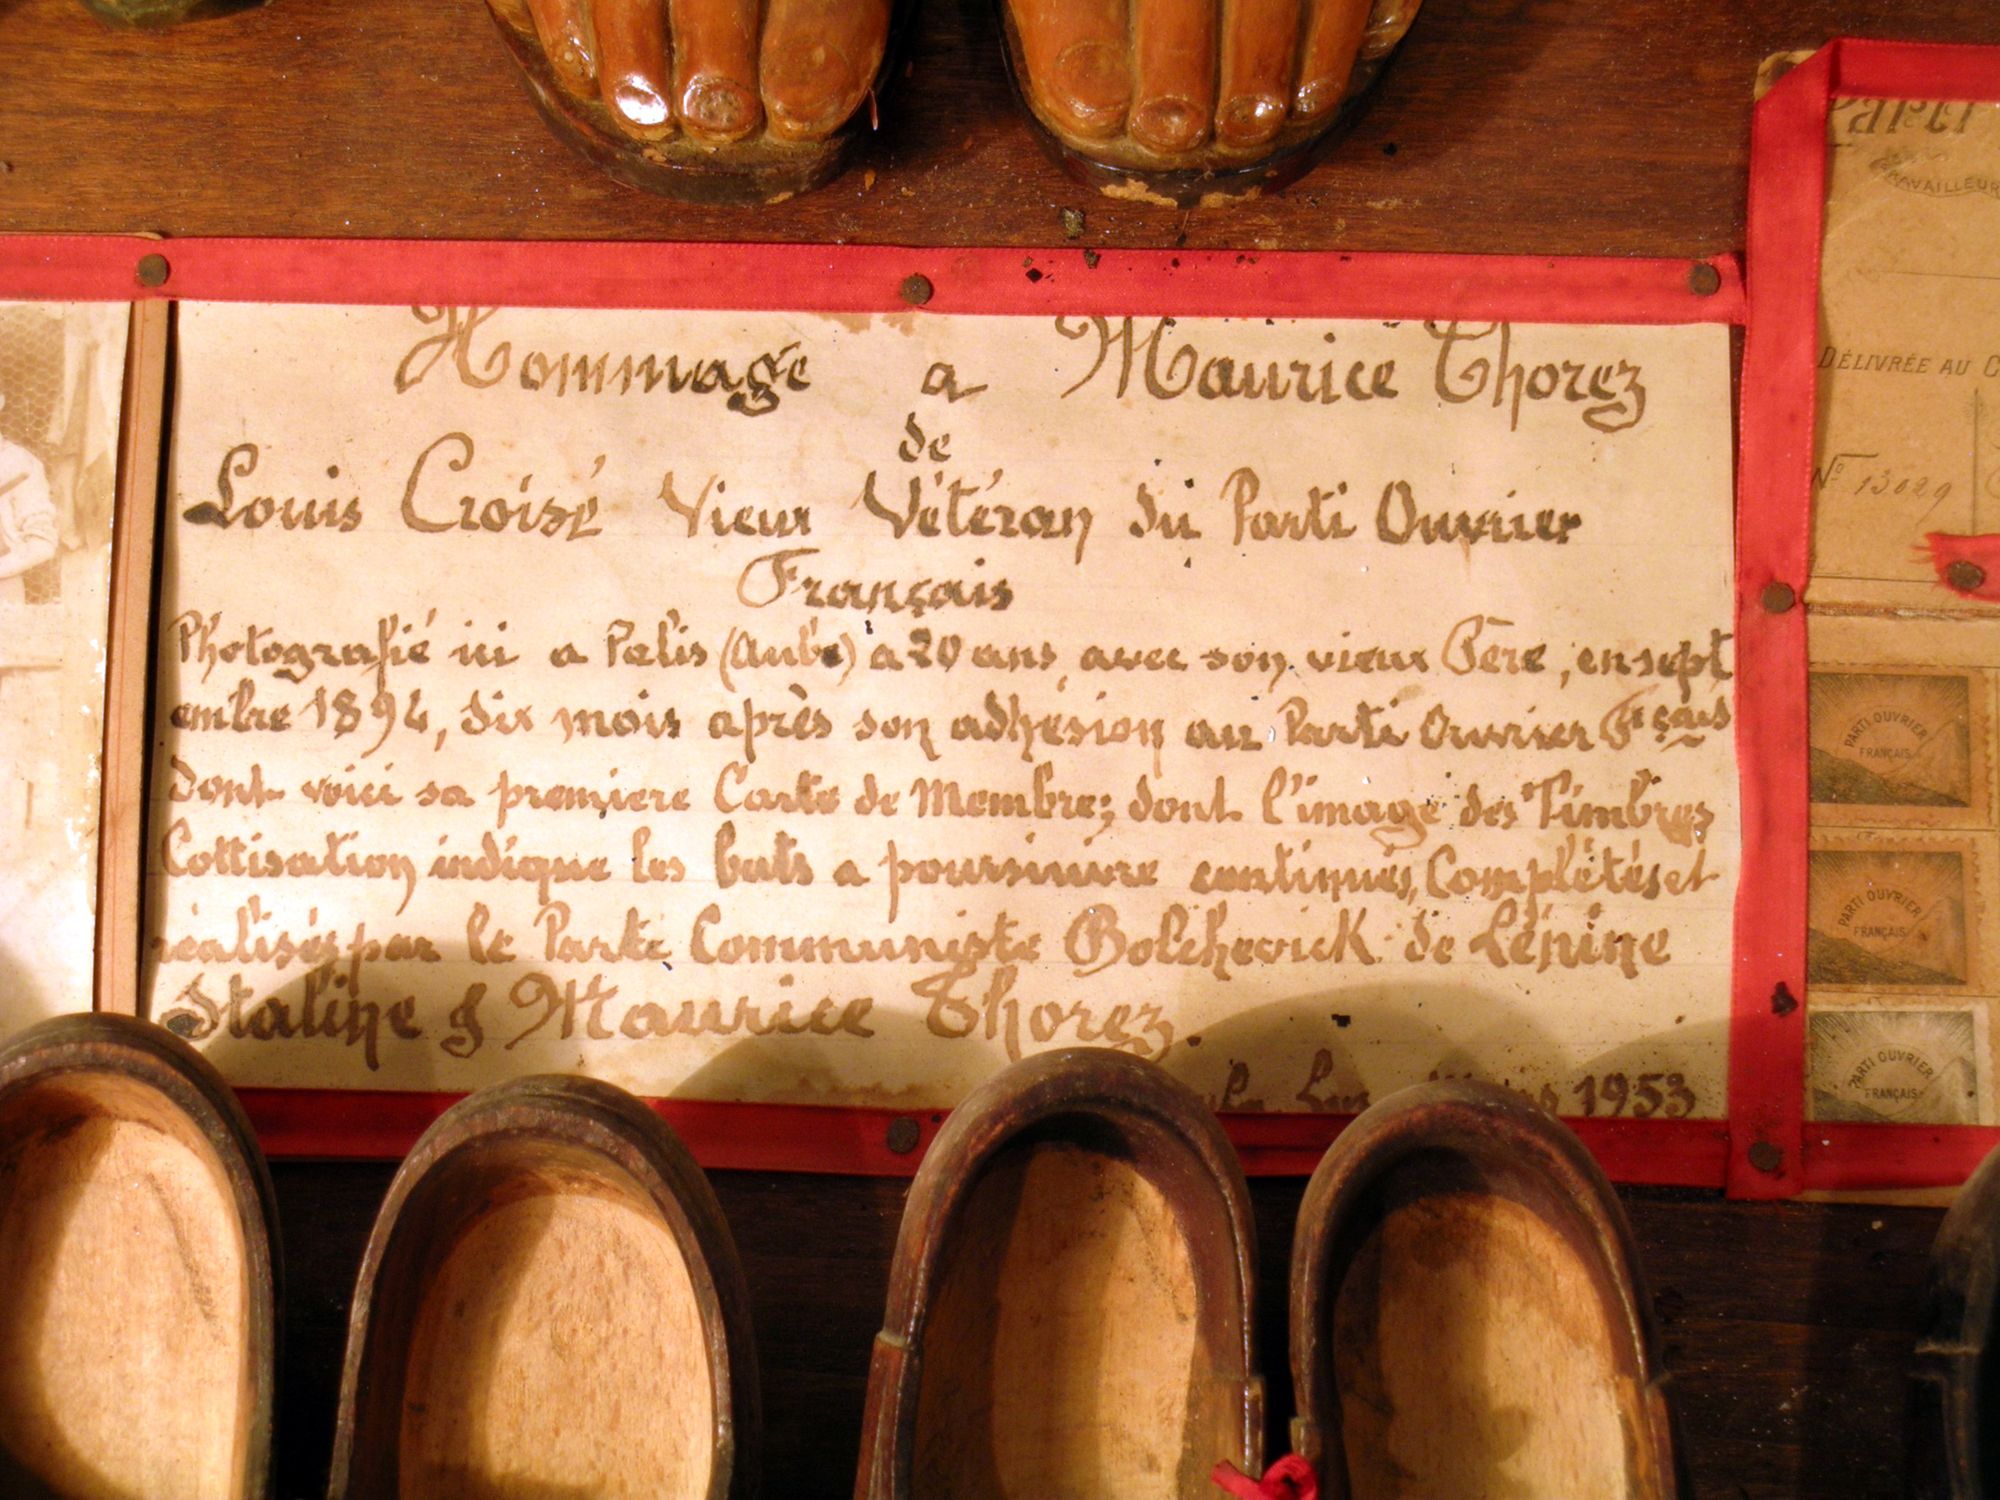 Hommage a Maurice Thorez
de
Louis Croisé Vieux Vétéran du Parti Ouvrier
Français
Photografié ici a Palis (Aube) a 20 ans, avec son vieux Père, en sept
embre 1894, dix mois après son adhésion au Parti Ouvrier Fçais
dont voici sa premiere Carte de Membre; dont l'image des Timbres
Cottisation indique les buts a poursuivre continués, Complétés et
réalisés par le Parti Communiste Bolchevick de Lénine
Staline & Maurice Thorez.
1953
Parti
TRAVAILLEUR
DÉLIVRÉE AU C
N° 13029
PARTI OUVRIER
FRANÇAIS
PARTI OUVRIER
FRANÇAIS
PARTI OUVRIER
FRANÇAIS